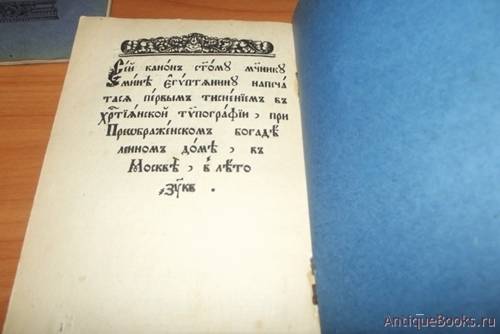 Сі́й канѡ́нъ ст҃о́му мч҃нику
Ми́нѣ Єгѵ́птѧнину напеча́
татасѧ пе́рвымъ тисне́нїемъ въ
хрⷭ҇тїа́нской тѵпогра́фїи, при
Преѡбраже́нском богадѣ́
ленном до́мѣ, въ
Москвѣ̀, в лѣ́то
҂зу҃кв .
AntiqueBooks.ru